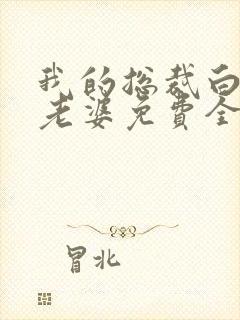 我的总裁白
老婆免费全
冒北